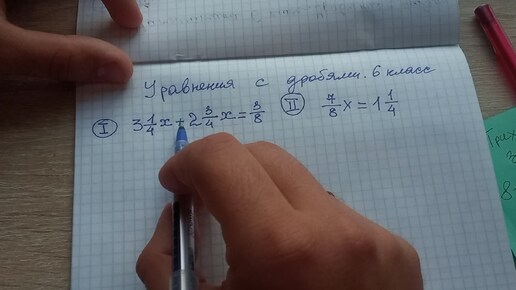 Уравнения с дробями. 6 класс
I 3 1/4 x + 2 3/4 x = 3/8
II 7/8 x = 1 1/4